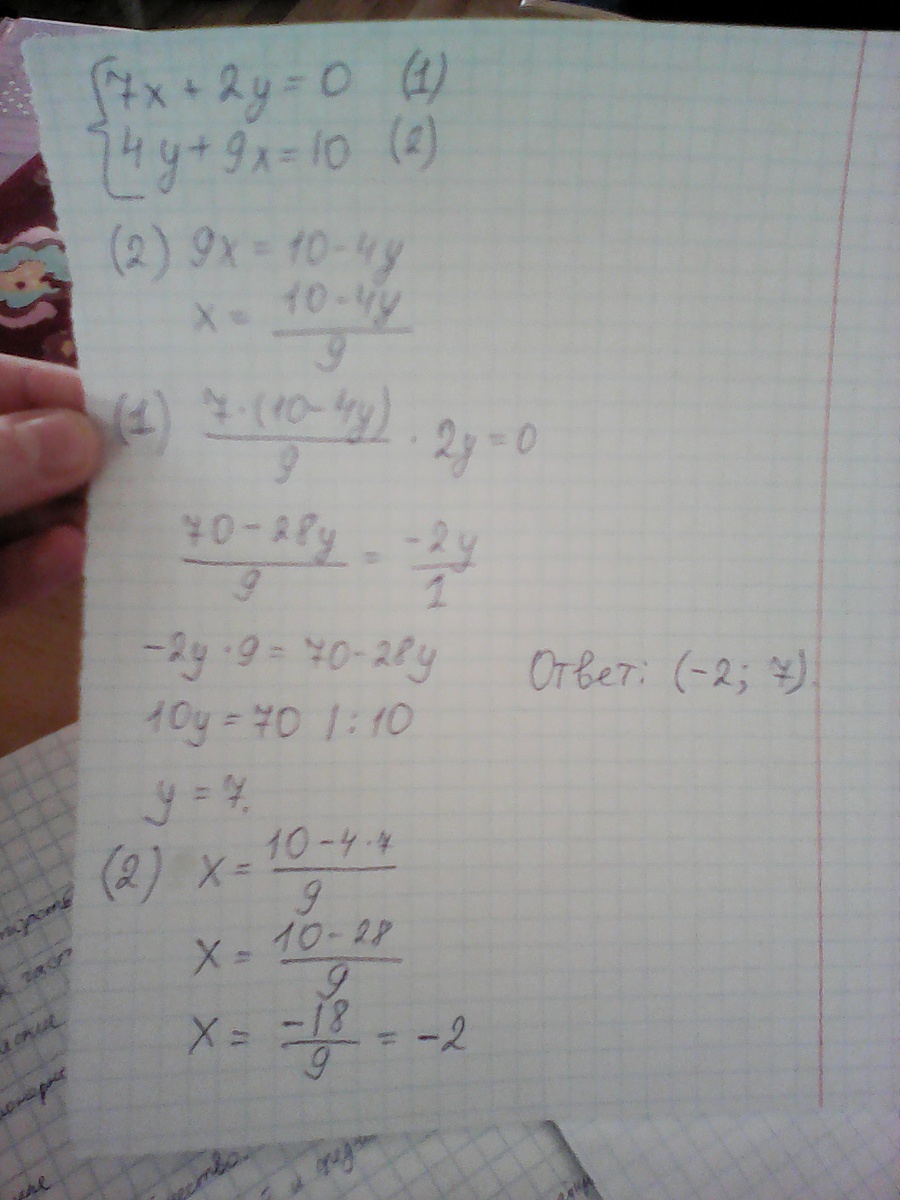 {7x + 2y = 0 (1)
4y + 9x = 10 (2)
(2) 9x = 10 - 4y
x = (10 - 4y)/9
(1) 7·(10 - 4y)/9 · 2y = 0
(70 - 28y)/9 = -2y/1
-2y · 9 = 70 - 28y
10y = 70 | : 10
y = 7.
(2) x = (10 - 4·7)/9
x = (10 - 28)/9
x = -18/9 = -2
Ответ: (-2; 7).